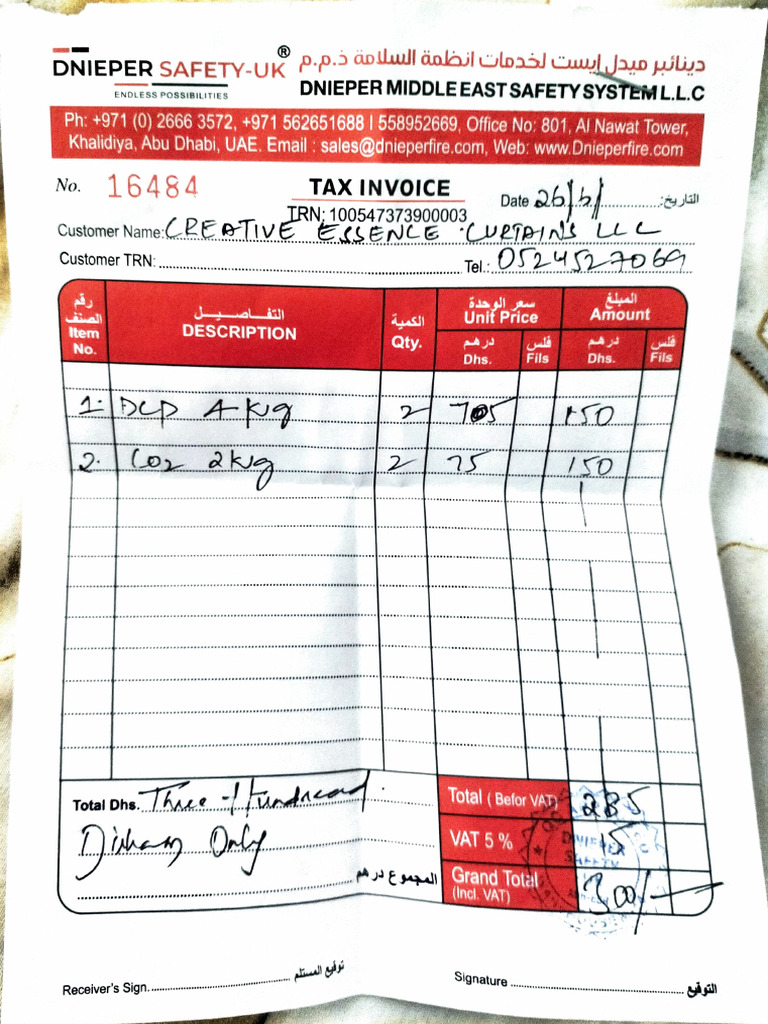 DNIEPER SAFETY-UK®
ENDLESS POSSIBILITIES
دينائبر ميدل إيست لخدمات انظمة السلامة ذ.م.م
DNIEPER MIDDLE EAST SAFETY SYSTEM L.L.C
Ph: +971 (0) 2666 3572, +971 562651688 I 558952669, Office No: 801, Al Nawat Tower,
Khalidiya, Abu Dhabi, UAE. Email : sales@dnieperfire.com, Web: www.Dnieperfire.com
No. 16484 TAX INVOICE Date 26/6/ التاريخ:
TRN: 100547373900003
Customer Name: CREATIVE ESSENCE CURTAINS LLC
Customer TRN: Tel.: 0524527069
رقم الصنف Item No. التفاصيل DESCRIPTION الكمية Qty. سعر الوحدة Unit Price المبلغ Amount
درهم Dhs. فلس Fils درهم Dhs. فلس Fils
1. DCP 4 kg 2 75 150
2. CO2 2kg 2 75 150
Total Dhs. Three Hundread Total ( Befor VAT) 285
Dirham Only VAT 5 % 15
المجموع درهم Grand Total (Incl. VAT) 300/-
DNIEPER SAFETY
Receiver's Sign. توقيع المستلم Signature التوقيع